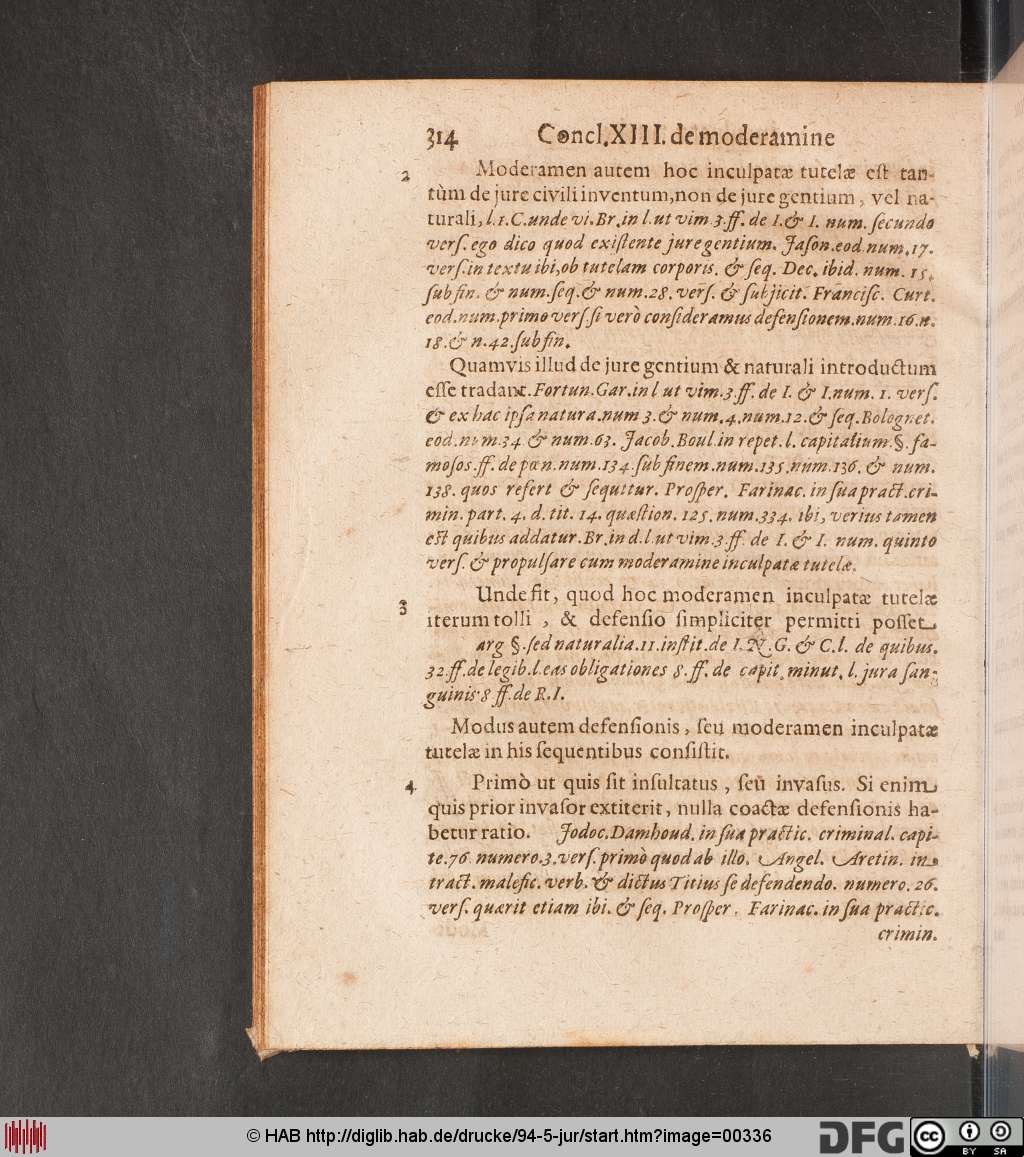 314 Concl. XIII. de moderamine
2 Moderamen autem hoc inculpatæ tutelæ est tan-
tùm de jure civili inventum, non de jure gentium, vel na-
turali, l. 1. C. unde vi. Br. in l. ut vim. 3. ff. de I. & I. num. ſecundo
verſ. ego dico quod exiſtente jure gentium. Jaſon. eod. num. 17.
verſ. in textu ibi, ob tutelam corporis. & ſeq. Dec. ibid. num. 15.
ſub fin. & num. ſeq. & num. 28. verſ. & ſubjicit. Franciſc. Curt.
eod. num. primo verſ. ſi verò conſideramus defenſionem. num. 16. n.
18. & n. 42. ſub fin.
Quamvis illud de jure gentium & naturali introductum
eſſe tradant. Fortun. Gar. in l ut vim. 3. ff. de I. & I. num. 1. verſ.
& ex hac ipſa natura. num 3. & num. 4. num. 12. & ſeq. Bolognet.
eod. num. 34. & num. 63. Jacob. Boul. in repet. l. capitalium. §. fa-
moſos. ff. de pœn. num. 134. ſub finem. num. 135. num. 136. & num.
138. quos refert & ſequitur. Proſper. Farinac. in ſua pract. cri-
min. part. 4. d. tit. 14. quæſtion. 125. num. 334. ibi, verius tamen
est quibus addatur. Br. in d. l. ut vim. 3. ff. de I. & I. num. quinto
verſ. & propulſare cum moderamine inculpatæ tutelæ.
3 Unde fit, quod hoc moderamen inculpatæ tutelæ
iterum tolli, & defenſio ſimpliciter permitti poſſet
arg §. ſed naturalia. 11. inſtit. de I. N. G. & C. l. de quibus.
32. ff. de legib. l. eas obligationes 8. ff. de capit. minut. l. jura ſan-
guinis 8 ff. de R. I.
Modus autem defenſionis, ſeu moderamen inculpatæ
tutelæ in his ſequentibus conſiſtit.
4. Primò ut quis ſit inſultatus, ſeu invaſus. Si enim
quis prior invaſor extiterit, nulla coactæ defenſionis ha-
betur ratio. Jodoc. Damhoud. in ſua practic. criminal. capi-
te. 76. numero. 3. verſ. primò quod ab illo. Angel. Aretin. in
tract. malefic. verb. & dictus Titius ſe defendendo. numero. 26.
verſ. quærit etiam ibi. & ſeq. Proſper. Farinac. in ſua practic.
crimin.
© HAB http://diglib.hab.de/drucke/94-5-jur/start.htm?image=00336
DFG cc BY SA